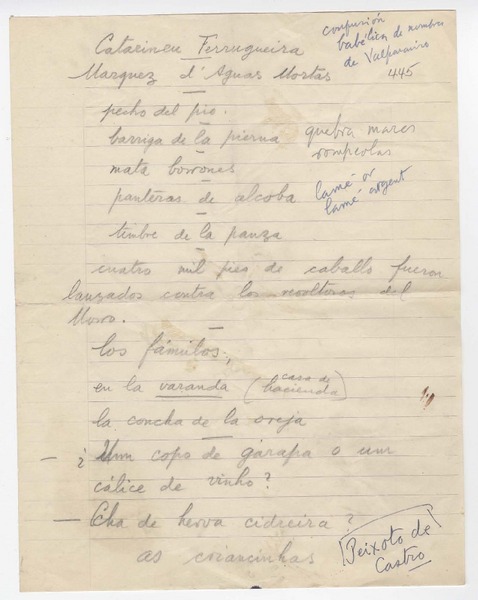 Ferrugueira
Marquez d'Aguas Mortas
confusión
babélica de nombres
de Valparaíso
445
pecho del pie.
barriga de la pierna
quebra mares
rompeolas
mata borrones
panteras de alcoba
lamé or
lamé argent
timbre de la panza
cuatro mil pies de caballo fueron
lanzados contra los del
Morro.
los fámulos,
en la varanda (casa de
hacienda)
la concha de la oreja
— ¿Um copo de garapa o um
cálice de vinho?
— Cha de herva cidreira?
as criancinhas
[Peixoto de
Castro]